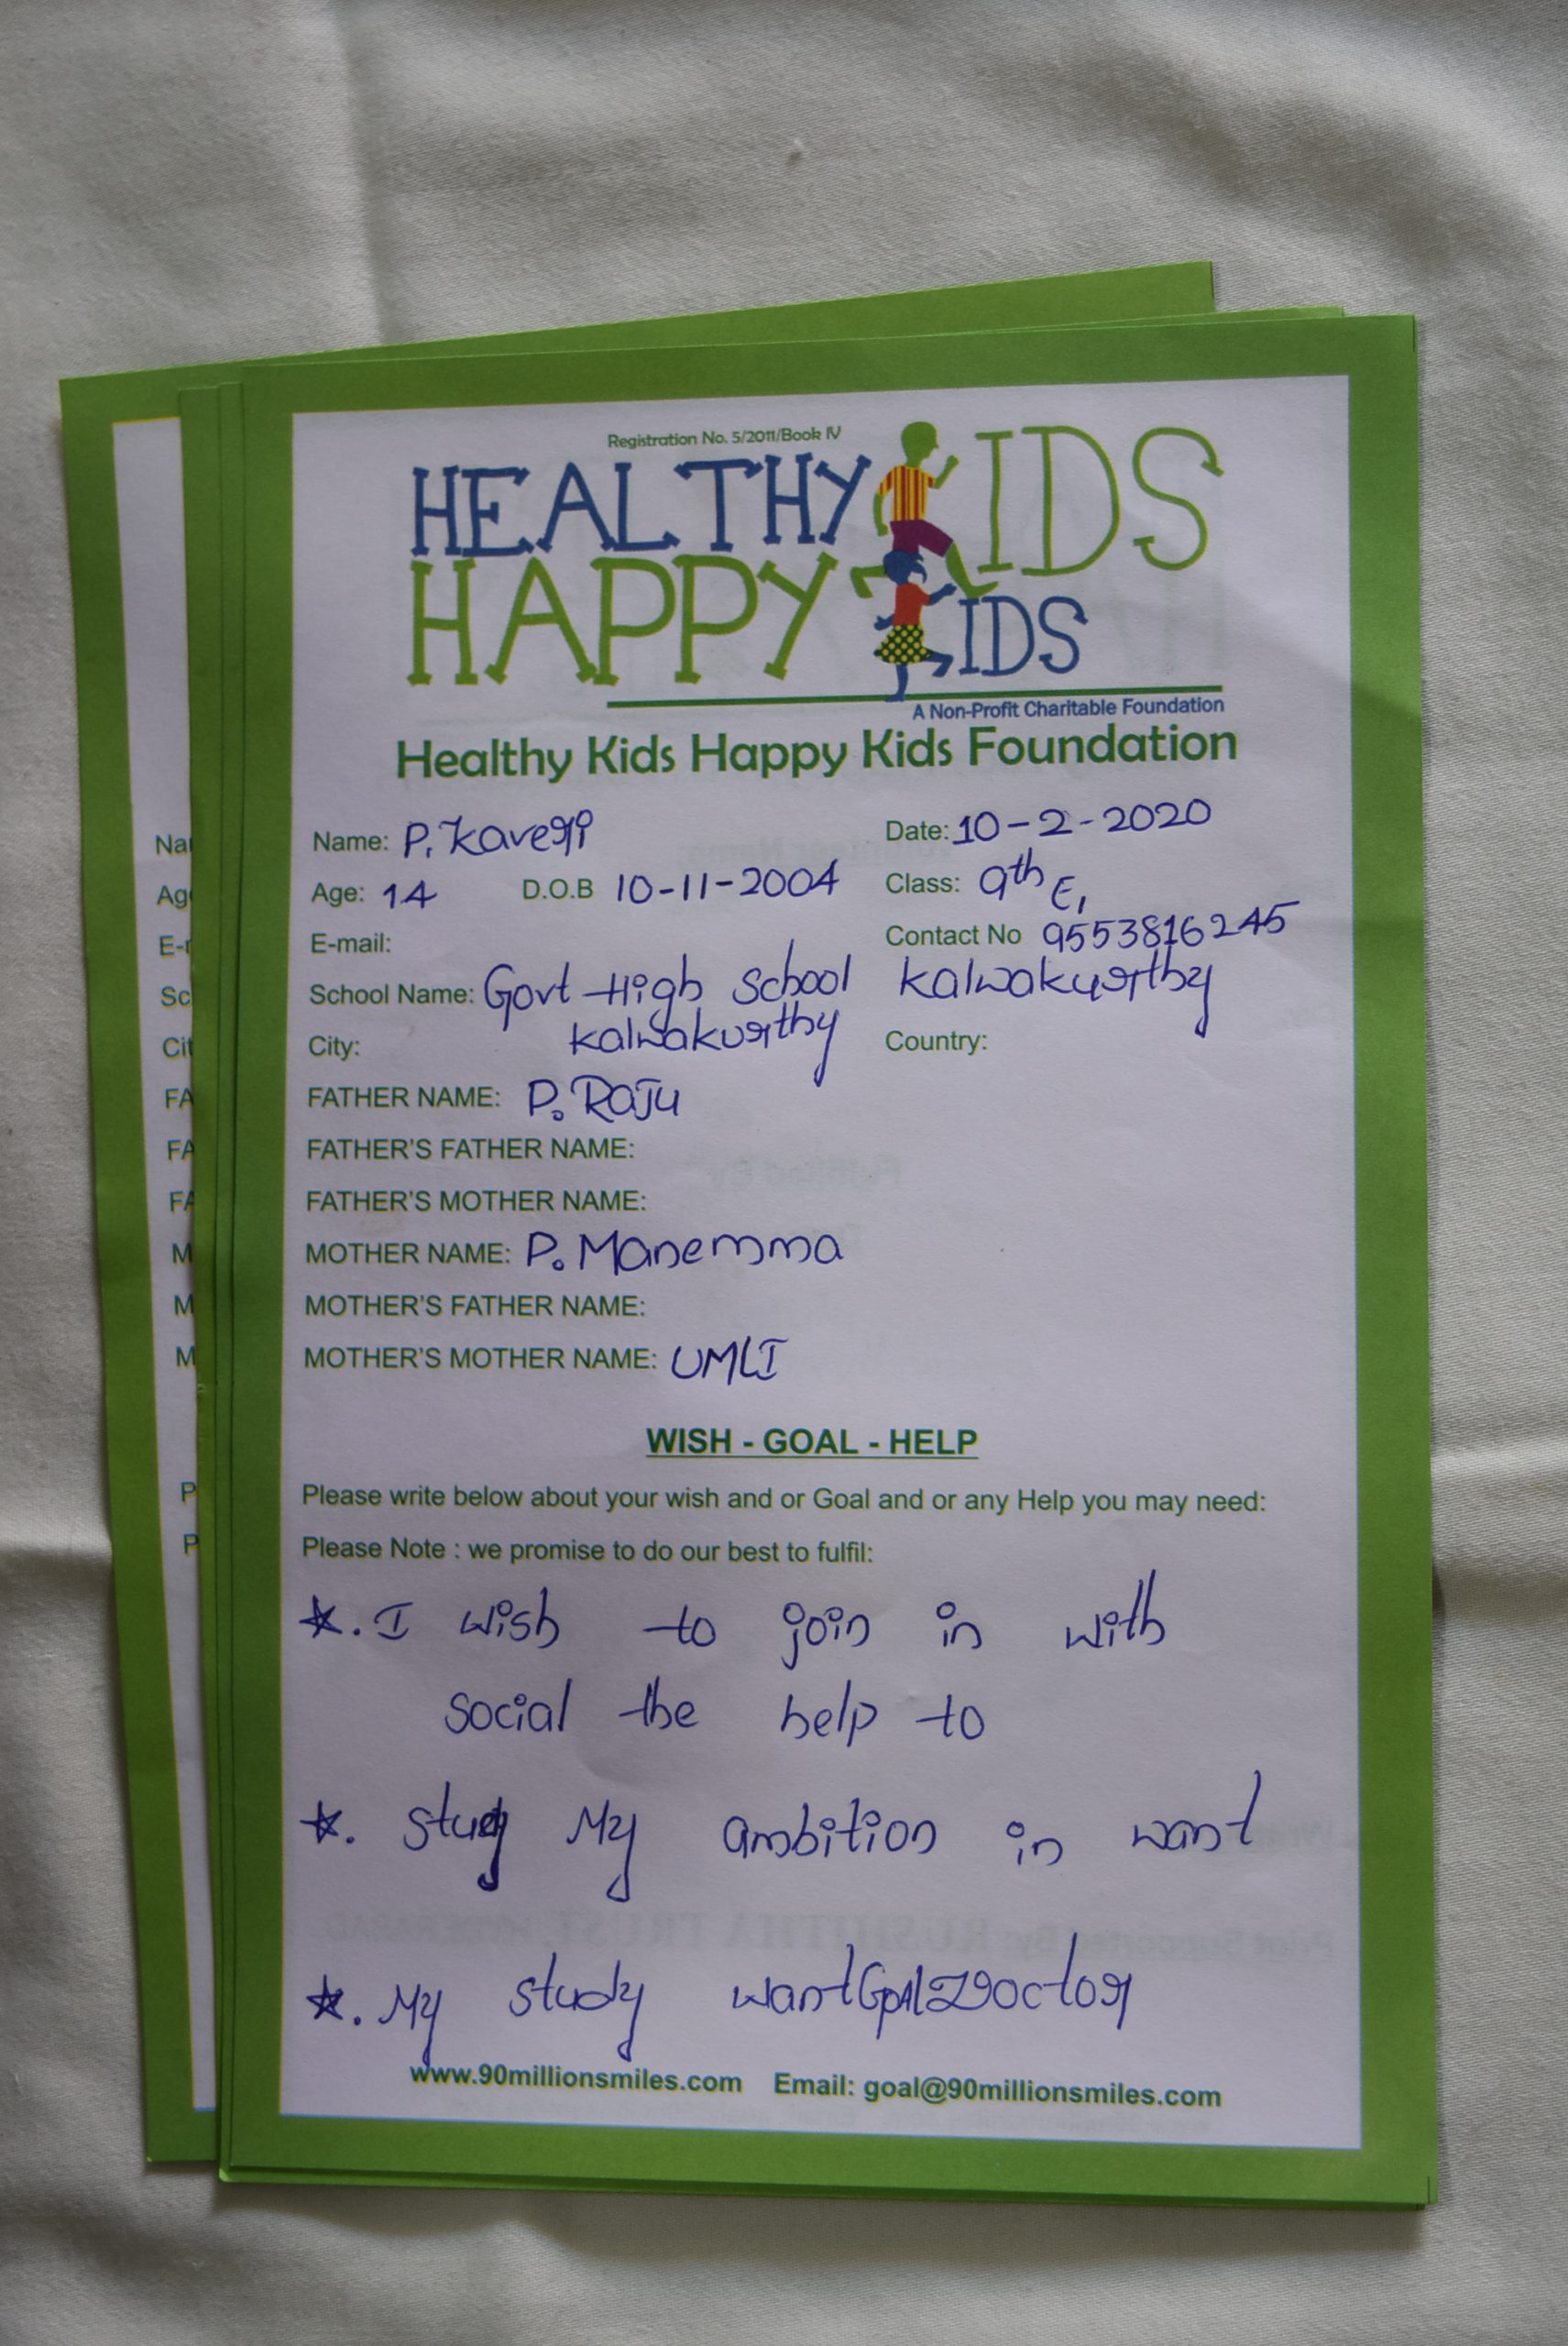 Registration No. 5/2011/Book IV
HEALTHY KIDS
HAPPY KIDS
A Non-Profit Charitable Foundation
Healthy Kids Happy Kids Foundation
Name: P. Kaveri Date: 10-2-2020
Age: 14 D.O.B 10-11-2004 Class: 9th E,
E-mail: Contact No 9553816245
School Name: Govt High School Kalwakurthy
City: Kalwakurthy Country:
FATHER NAME: P. Raju
FATHER'S FATHER NAME:
FATHER'S MOTHER NAME:
MOTHER NAME: P. Manemma
MOTHER'S FATHER NAME:
MOTHER'S MOTHER NAME: UMLI
WISH - GOAL - HELP
Please write below about your wish and or Goal and or any Help you may need:
Please Note : we promise to do our best to fulfil:
★. I wish to join in with
social the help to
★. study My ambition in want
★. My study want Goal Doctor
www.90millionsmiles.com Email: goal@90millionsmiles.com
Nar
Age
E-r
Sc
Cit
FA
FA
FA
M
M
M
P
P